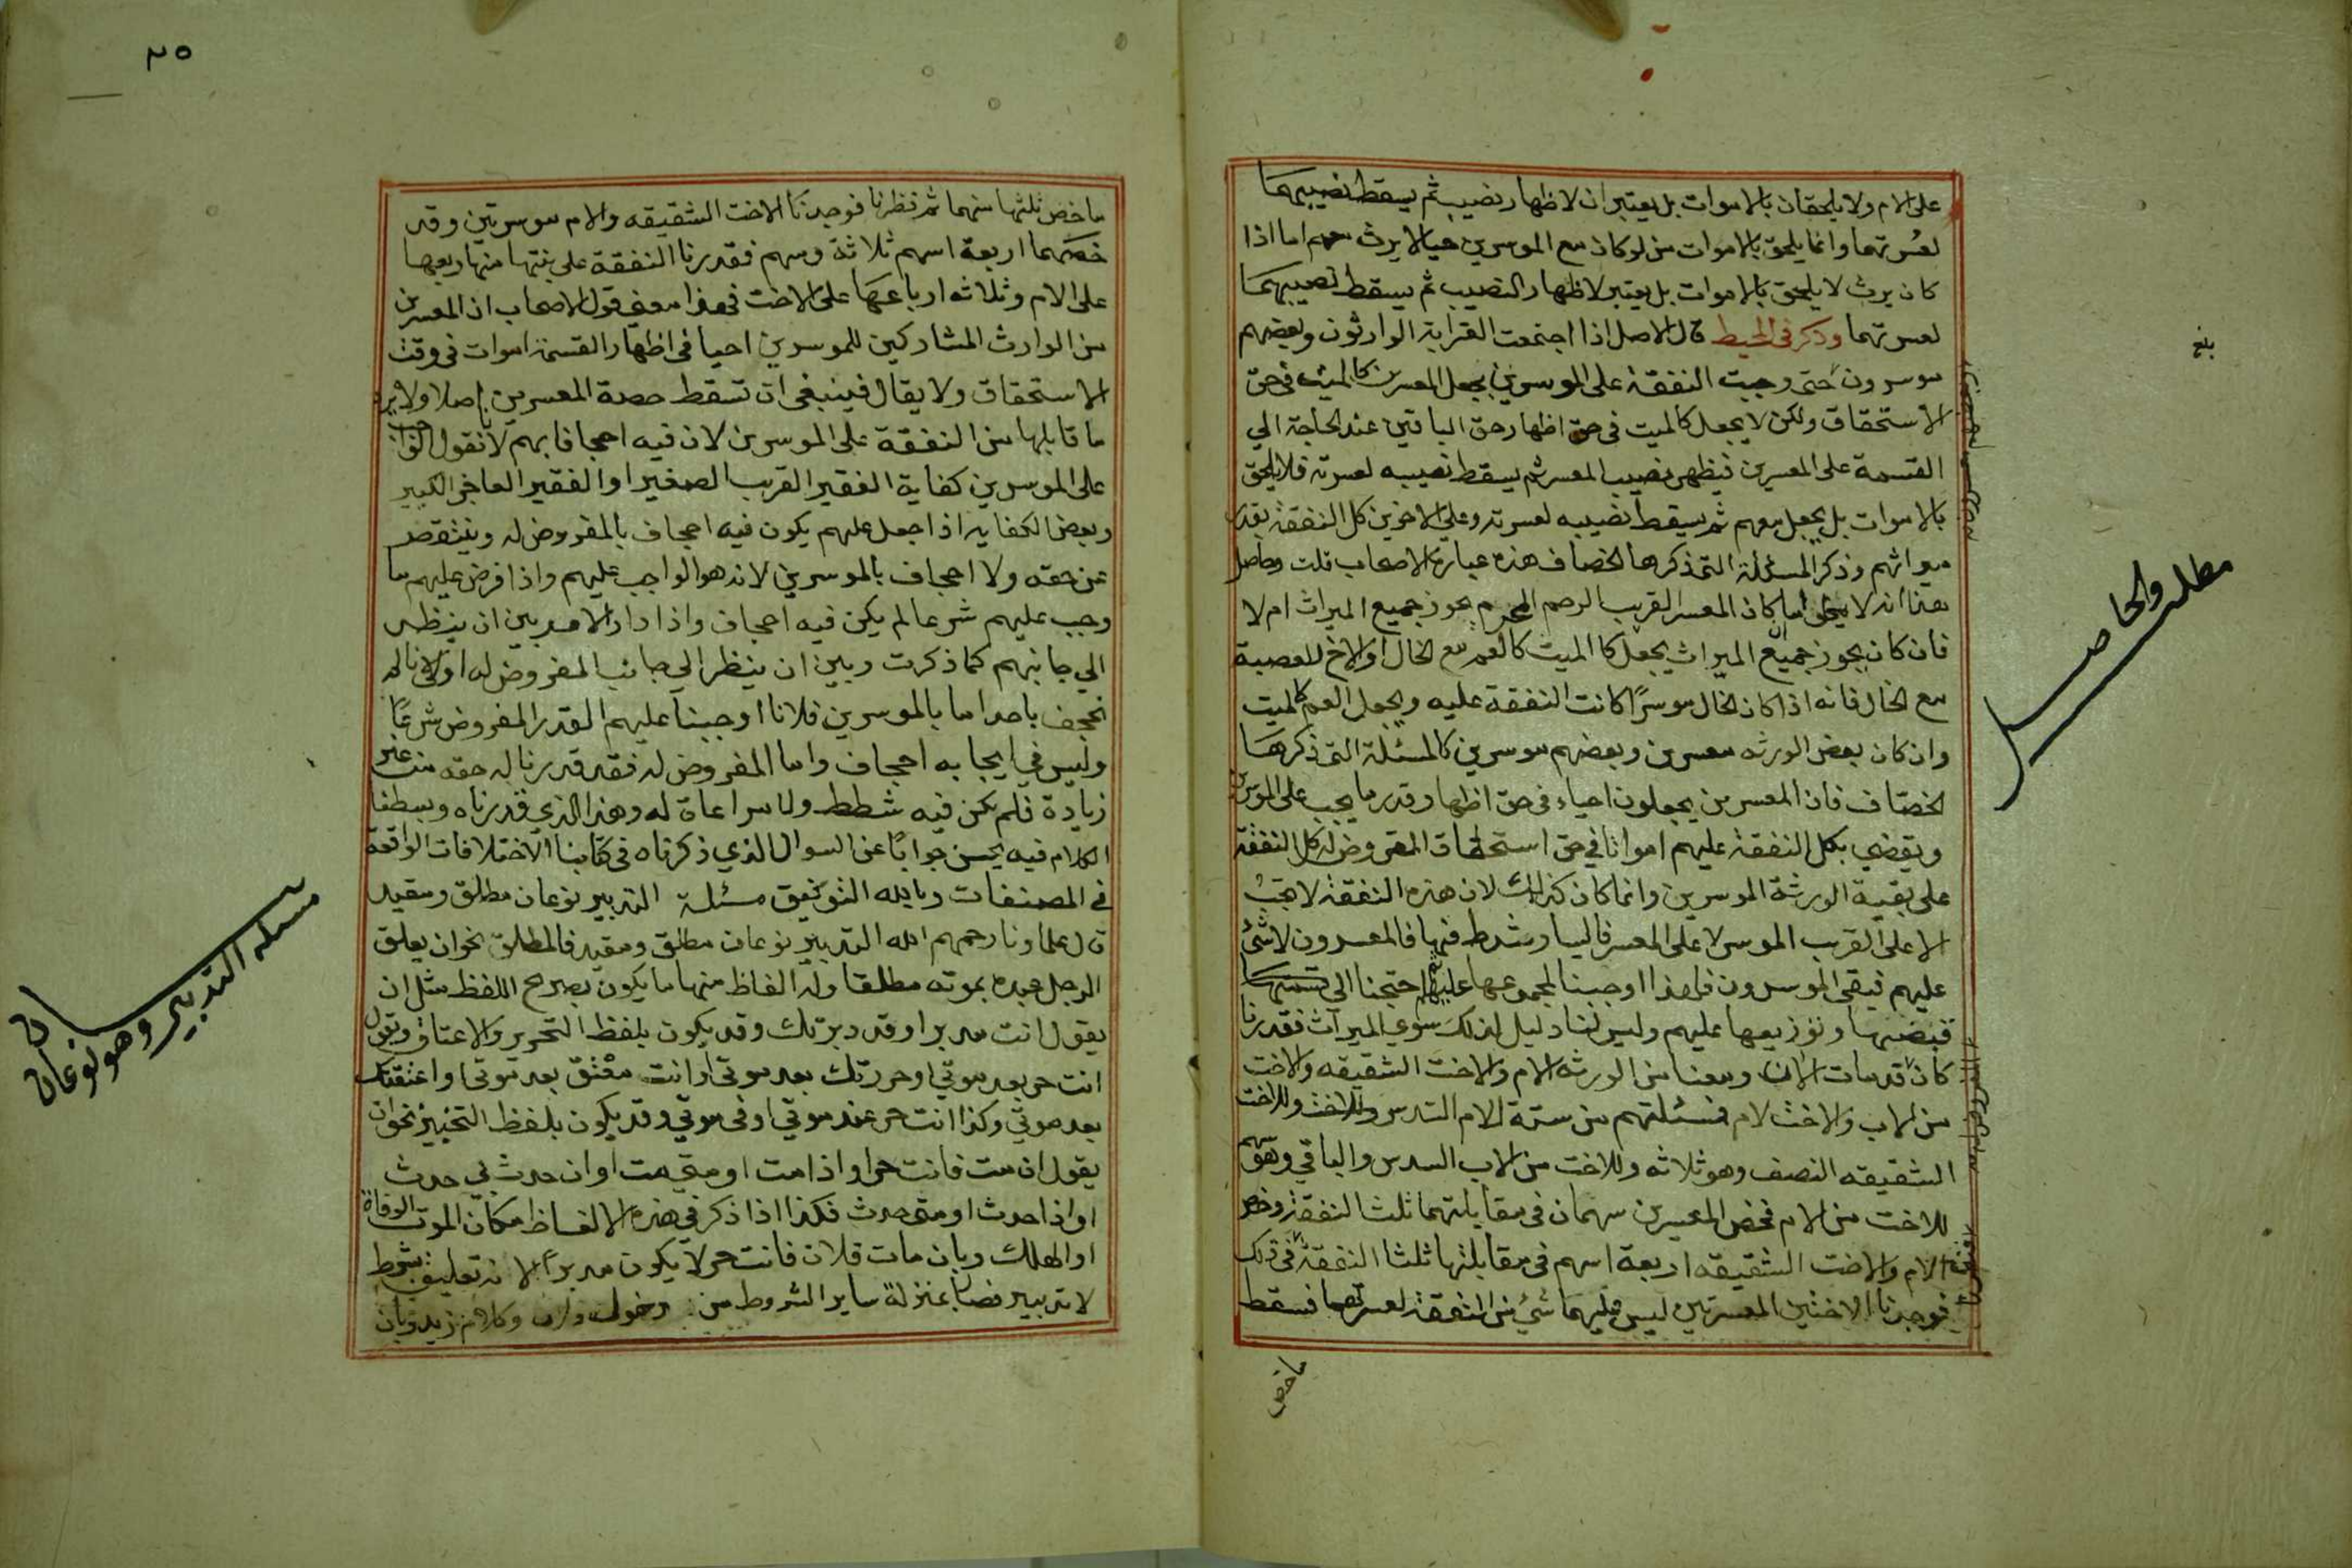 على الام ولا يلحقان بالاموات بل يعتبران لاظهار نصيب ثم يسقط نصيبهما
لعسرتهما وانما يلحق بالاموات من لو كان مع الموسرين حيا لا يرث معهم اما اذا
كان يرث لا يلحق بالاموات بل يعتبر لاظهار النصيب ثم يسقط نصيبهما
لعسرتهما وذكر في المحيط قال الاصل اذا اجتمعت القرابة الوارثون وبعضهم
موسرون حتى وجبت النفقة على الموسرين يجعل المعسرين كالميت في حق
الاستحقاق ولكن لا يجعل كالميت في حق اظهار حق الباقين عند الحاجة الي
القسمة على المعسرين فيظهر نصيب المعسر ثم يسقط نصيبه لعسرته فلا يلحق
بالاموات بل يجعل معهم ثم يسقط نصيبه لعسرته وعلى الاخرين كل النفقة بقدر
ميراثهم وذكر المسئلة التي ذكرها الخصاف هذه عبارة الاصحاب قلت وحاصل
هذا انه لا يخلى اما كان المعسر القريب الرحم المحرم يحوز جميع الميراث ام لا
فان كان يحوز جميع الميراث يجعل كا الميت كالعم مع الخال او الاخ للعصبة
مع الخال فانه اذا كان الخال موسرًا كانت النفقة عليه ويجعل العم كالميت
وان كان بعض الورثه معسرين وبعضهم موسرين كالمسئلة التي ذكرها
الخصاف فان المعسرين يجعلون احياء في حق اظهار قدر ما يجب على الموسرين
ويقضي بكل النفقة عليهم امواتا في حق استحقاق المفروض له كل النفقة
على بقية الورثة الموسرين وانما كان كذلك لان هذه النفقة لا تجب
الا على القريب الموسر لا على المعسر فاليسار شرط فيها فالمعسرون لا شئ
عليهم فبقي الموسرون فلهذا اوجبنا لمجموعها عليهم احتجنا الي قسمتها
فبضتها ونوزيعها عليهم وليس لنا دليل لذلك سوي الميراث فقدرنا
كان قد مات الان ومعنا من الورثه الام والاخت الشقيقه والاخت
من الاب والاخت لام فمسئلتهم من ستة للام السدس وللاخت وللاخت
الشقيقه النصف وهو ثلاثه وللاخت من الاب السدس والباقي وهو سهم
للاخت من الام فخص المعسرين سهمان في مقابلتهما ثلث النفقة وخص
الام والاخت الشقيقه اربعة اسهم في مقابلتها ثلثا النفقة في ذلك
فوجدنا الاختين المعسرتين ليس عليهما شئ من النفقة لعسرتهما فسقط
ماخص
بلغ
مطلب والحاصل
٢٥
ماخص ثلثها منهما ثم نظرنا فوجدنا الاخت الشقيقه والام موسرتين وقد
خصهما اربعة اسهم ثلاثة وسهم فقدرنا النفقة على بنتها منها ربعها
على الام وثلاثه ارباعها على الاخت فهذا معني قول الاصحاب ان المعسرين
من الوارث المشاركين للموسرين احيا في اظهار القسمة اموات في وقت
الاستحقاق ولا يقال فينبغي ان تسقط حصة المعسرين اصلا ولا يرد
ما قابلها من النفقة على الموسرين لان فيه اجحافا بهم لانقول الواجب
على الموسرين كفاية الفقير القريب الصغير او الفقير العاجز الكبير
وبعض الكفايه اذا جعل عليهم يكون فيه اجحاف بالمفروض له وينتقص
عن حقه ولا اجحاف بالموسرين لانه هو الواجب عليهم واذا فرض عليهم ما
وجب عليهم شرعا لم يكن فيه اجحاف واذا دار الامر بين ان ينظر
الي جانبهم كما ذكرت وبين ان ينظر الي جانب المفروض له اولانا له
نجحف باحد اما بالموسرين فلانا اوجبنا عليهم القدر المفروض شرعًا
وليس في ايجابه اجحاف واما المفروض له فقد قدرنا له حقه من غير
زيادة فلم يكن فيه شطط ولا مراعاة له وهذا الذي قدرناه وبسطنا
الكلام فيه يحسن جوابًا عن السوال الذي ذكرناه في كتابنا الاختلافات الواقعة
في المصنفات وبالله التوفيق مسئلة التدبير نوعان مطلق ومقيد
قال علماونا رحمهم الله التدبير نوعان مطلق ومقيد فالمطلق نحو ان يعلق
الرجل عبده بموته مطلقا وله الفاظ منها ما يكون بصريح اللفظ مثل ان
يقول انت مدبر او قد دبرتك وقد يكون بلفظ التحرير والاعتاق وتقول
انت حر بعد موتي او حررتك بعد موتي او انت معتق بعد موتي او اعتقتك
بعد موتي وكذا انت حر عند موتي او في موتي وقد يكون بلفظ التخيير نحو ان
يقول ان مت فانت حر او اذا مت او متي مت او ان حدث بي حدث
او اذا حدث او متي حدث فكذا اذا ذكر في هذه الالفاظ مكان الموت الوفاة
او الهلاك وبان مات فلان فانت حر لا يكون مدبرًا لانه تعليق بشرط
لا تدبير فصار بمنزلة ساير الشروط من دخول وكلام زيد وبان
مسئله التدبير وهو نوعان